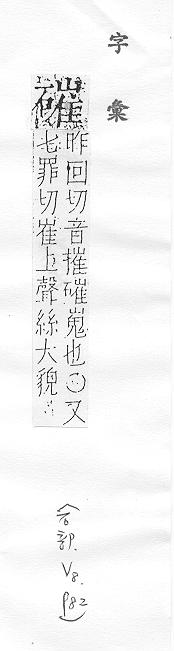 字彙
磪
昨回切音摧磪嵬也○又
七罪切崔上聲絲大貌
(石部.
V8.
P82)